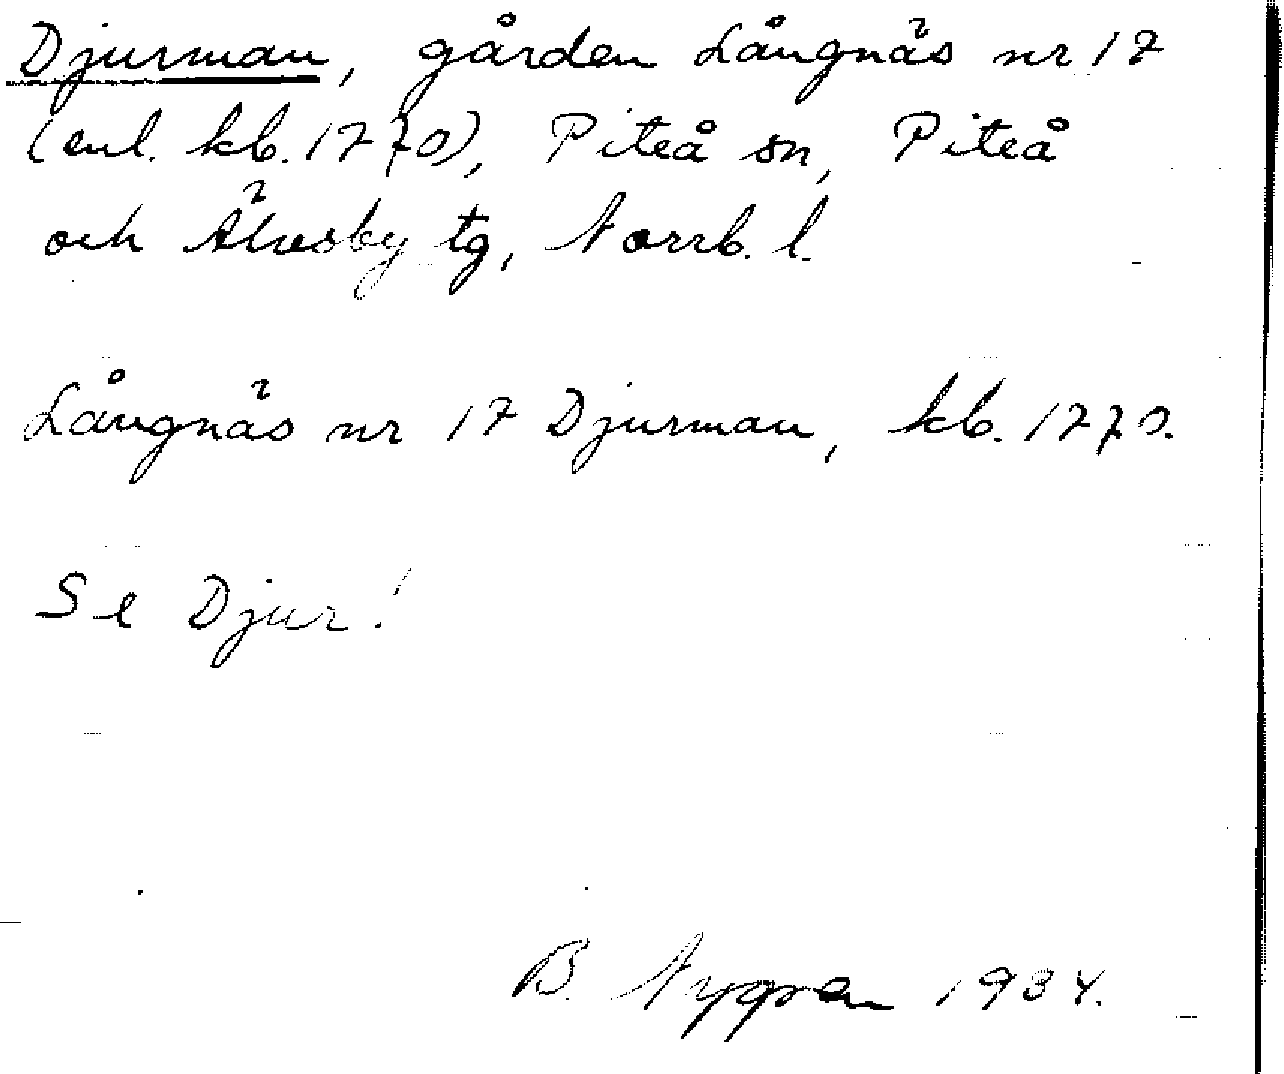 Djurman, gården Långnäs nr 17
(enl. kb. 1770), Piteå sn, Piteå
och Älvsby tg, Norrb. l.
Långnäs nr 17 Djurman, kb. 1770.
Se Djur!
B. Nygren 1934.